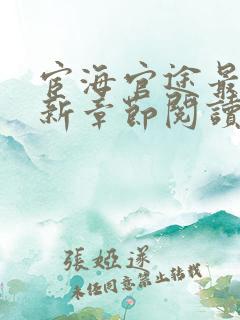 宦海官途最
新章節閱讀
張婭遂
未經同意禁止轉載